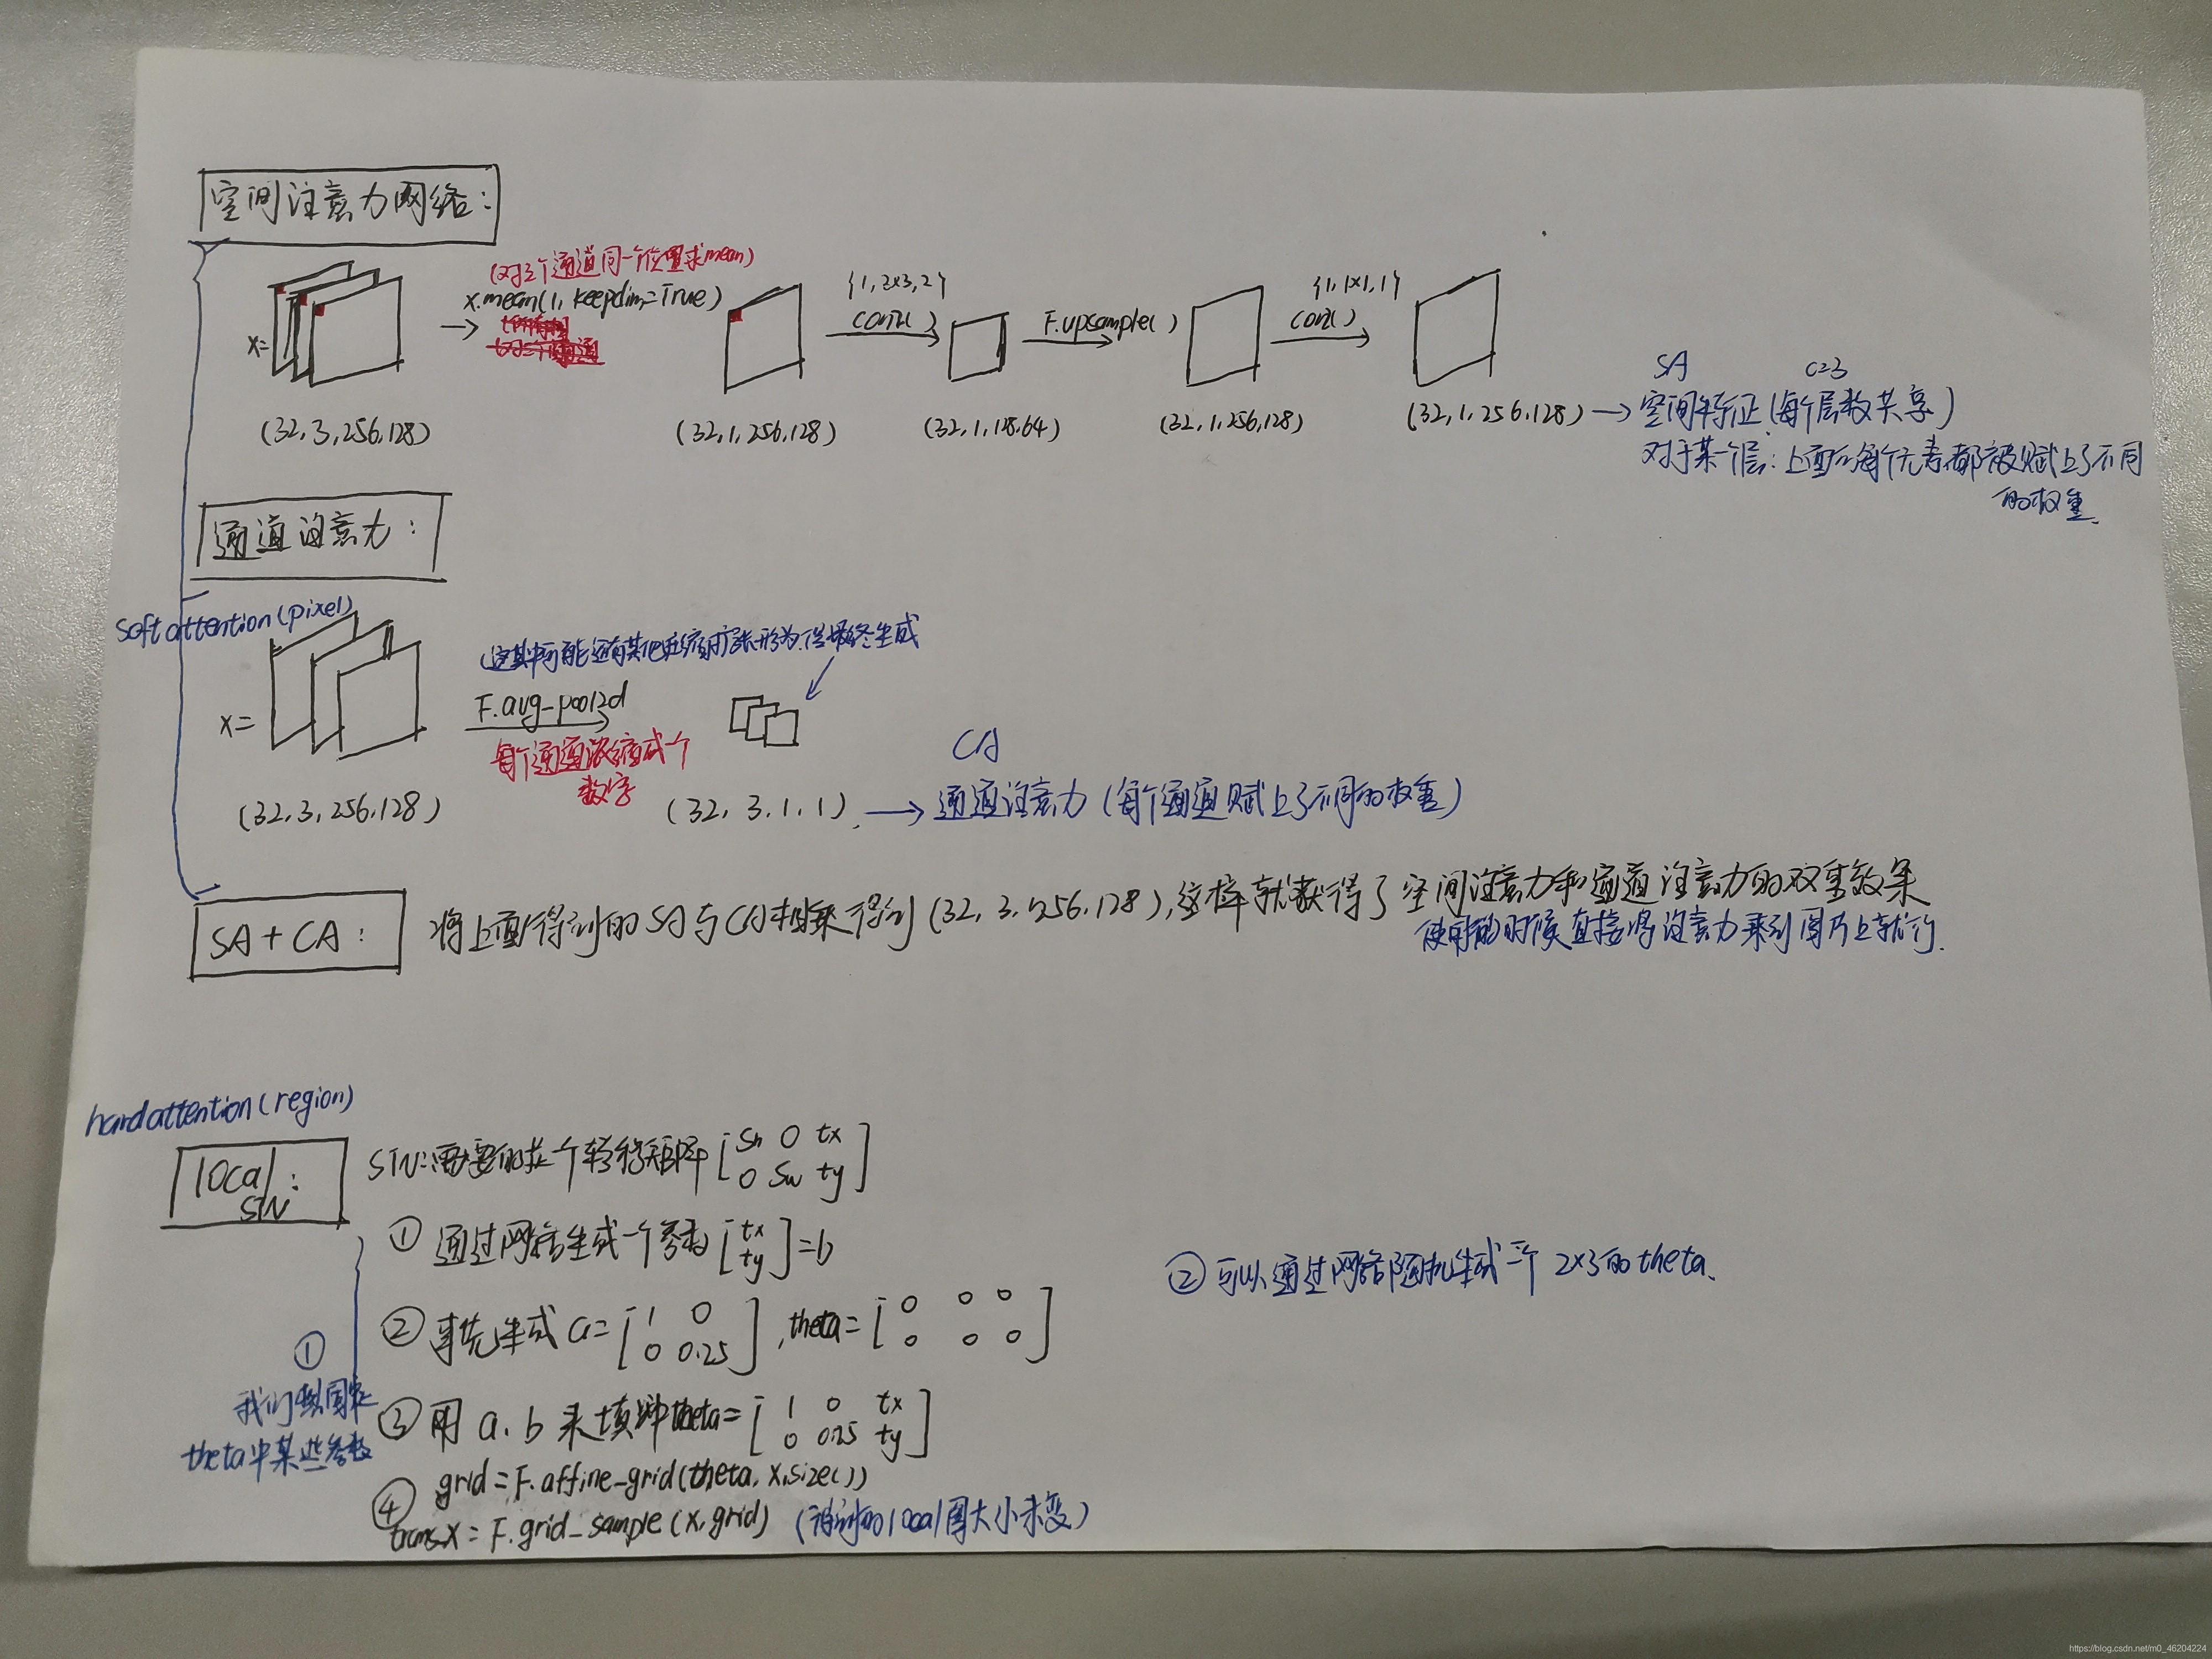 空间注意力网络：
(对三个通道同一个位置求mean)
x.mean(1, keepdim=True)
{1, 3x3, 2}
conv2()
F.upsample()
{1, 1x1, 1}
conv()
X=
SA
C=3
(32, 3, 256, 128)
(32, 1, 256, 128)
(32, 1, 128, 64)
(32, 1, 256, 128)
(32, 1, 256, 128) → 空间特征 (每个层数共享)
对于某一个层：上面的每个元素都被赋上了不同
的权重.
通道注意力：
soft attention (pixel)
(这其中可能还有其他压缩扩张形为, 但最终生成
X=
F.avg_pool2d
每个通道浓缩成一个
数字
CA
(32, 3, 256, 128)
(32, 3, 1, 1) → 通道注意力 (每个通道赋上了不同的权重)
SA + CA：
将上面得到的SA与CA相乘得到 (32, 3, 256, 128), 这样就获得了空间注意力和通道注意力的双重效果
使用的时候直接将注意力乘到图片上就行.
hard attention (region)
local：
STN
STN: 需要的是一个转移矩阵 [Sh 0 tx
0 Sw ty]
① 通过网络生成一个参数 [tx
ty] = b
② 可以通过网络随机生成一个 2x3的theta.
② 事先生成 a = [1 0
0 0.25], theta = [0 0 0
0 0 0]
①
我们固定
theta中某些参数
③ 用 a、b 来填冲theta = [1 0 tx
0 0.25 ty]
④ grid = F.affine_grid(theta, x.size())
trans_x = F.grid_sample(x, grid) (得到的local图大小未变)
https://blog.csdn.net/m0_46204224